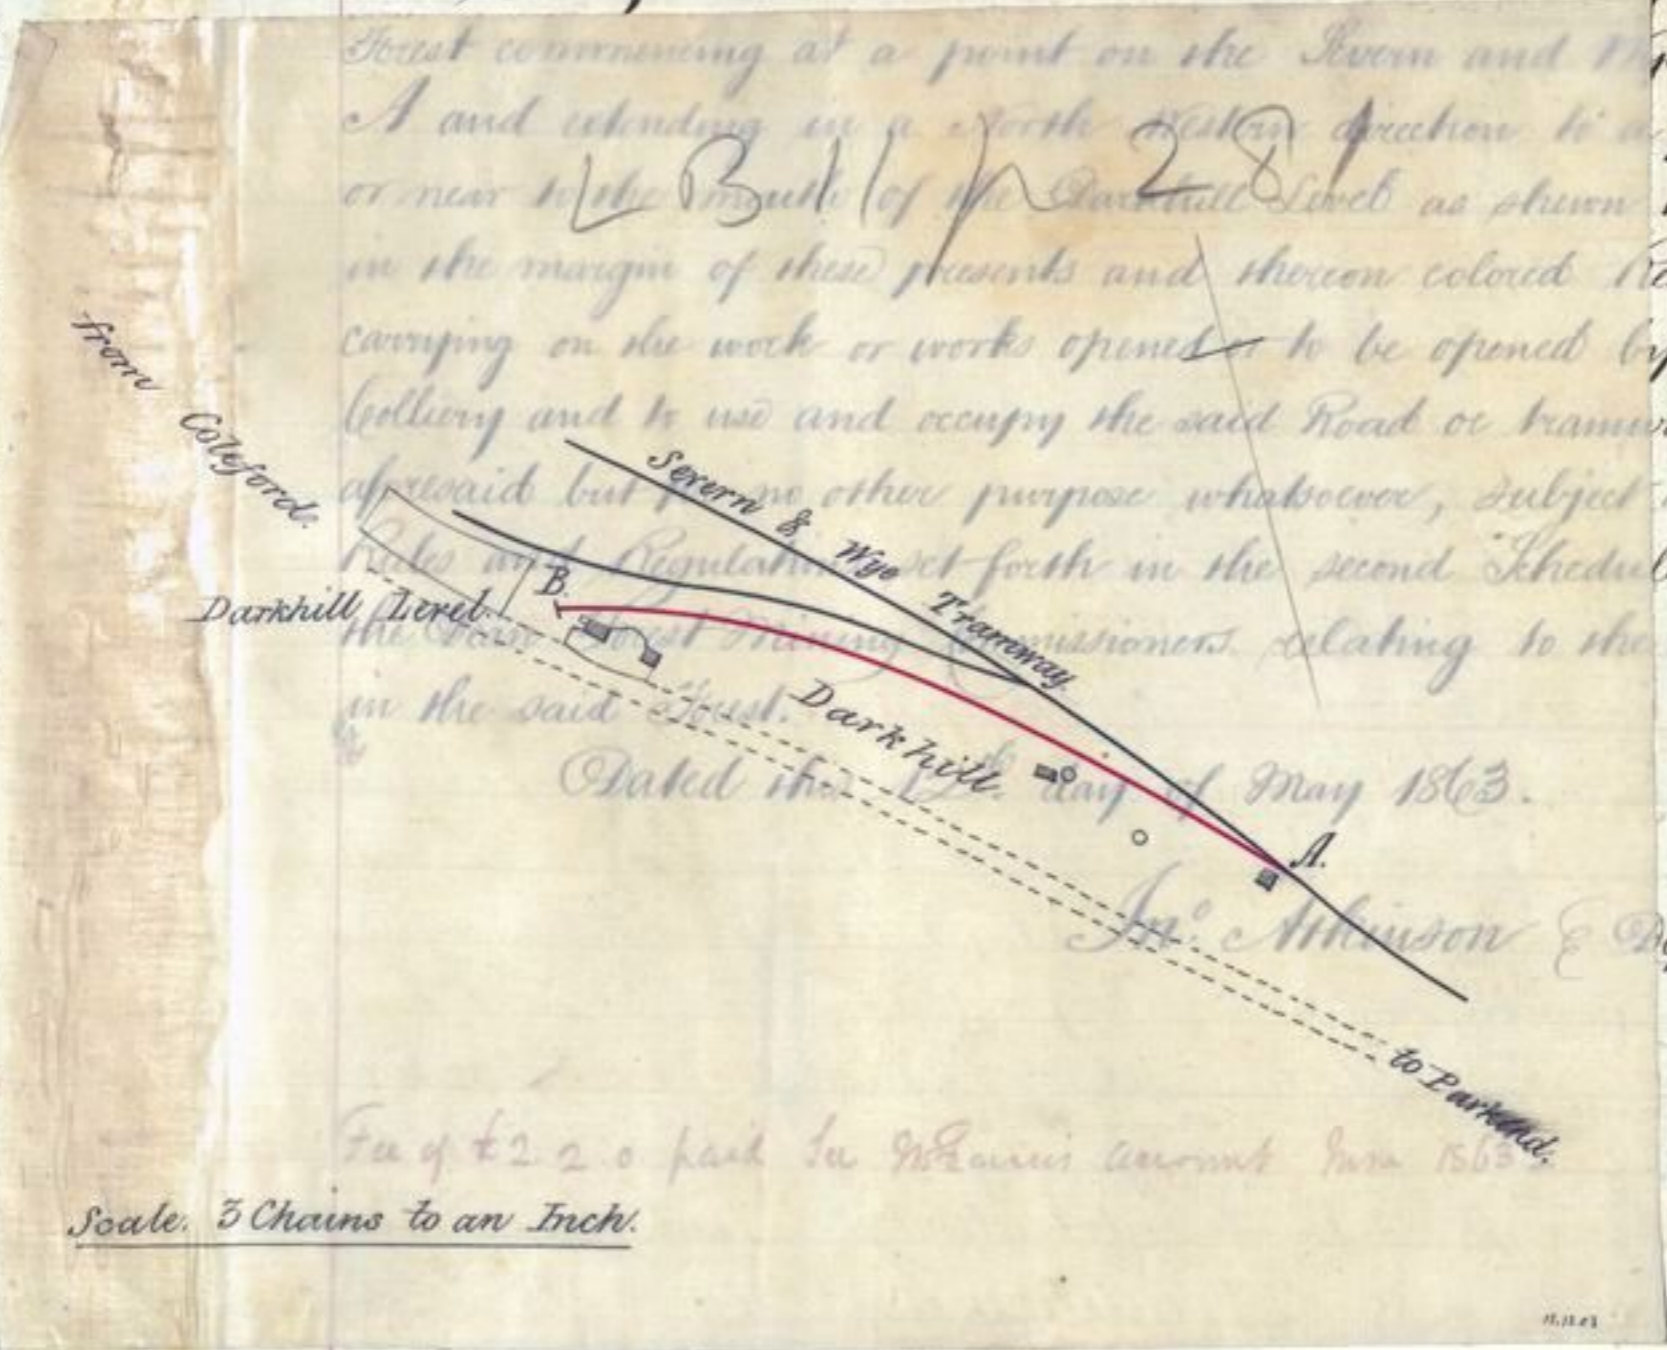 Forest commencing at a point on the Severn and
A and extending in a North Western direction to a
L B 11 p 281
or near to the mouth of the Darkhill Level as shewn
in the margin of these presents and thereon colored
carrying on the work or works opened or to be opened by
Colliery and to use and occupy the said Road or
aforesaid but for no other purpose whatsoever, subject
Rules and Regulations set forth in the second
the Dean Forest Mining Commissioners relating to the
in the said Forest.
Dated this day of May 1863.
Jno. Atkinson
Fee of £2 2.0 paid See account June 1863
from Coleford.
Severn & Wye Tramway
B.
Darkhill Level.
Darkhill.
A.
to Parkend.
Scale. 3 Chains to an Inch.